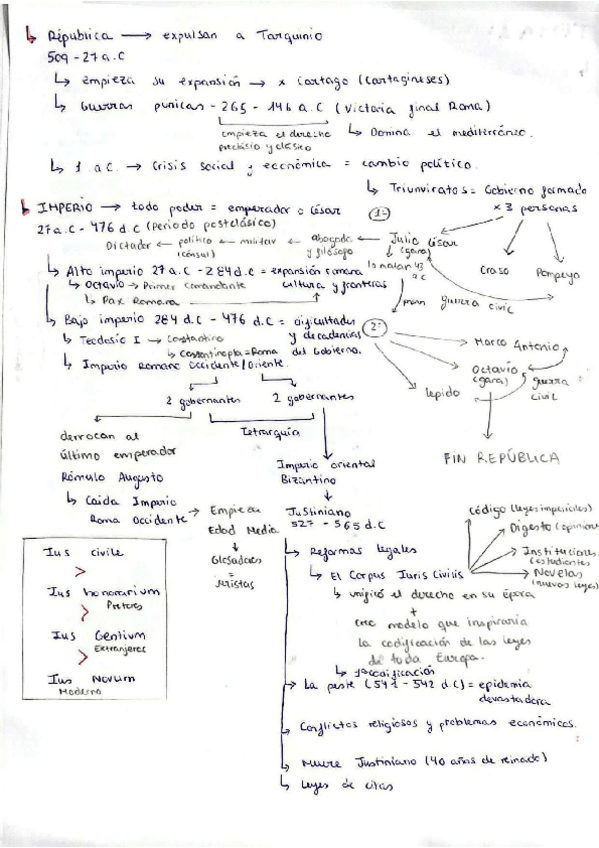 República → expulsan a Tarquinio
509 - 27 a.C
↳ empieza su expansión → x Cartago (Cartagineses)
↳ Guerras punicas - 265 - 146 a.C (Victoria final Roma)
empieza el derecho
preclásio y clásico
↳ Domina el mediterráneo.
↳ 1 a.C. → Crisis social y económica = cambio político.
↳ Triunviratos = Gobierno formado
x 3 personas
IMPERIO → todo poder = emperador o césar
27 a.C - 476 d.C (Periodo postclásico)
1º
Dictador ← político ← militar ← abogado ← Julio César
(cónsul)
y filósofo
(gana)
lo matan 43
a.C
Craso
Pompeyo
guerra civil
↳ Alto imperio 27 a.C - 284 d.C = expansión romana
cultura y fronteras
↳ Octavio → Primer comandante
↳ Pax Romana
↳ Bajo imperio 284 d.C - 476 d.C = dificultades
y decadencias
del Gobierno.
↳ Teodosio I → Constantino
↳ Constantinopla = Roma
↳ Imperio Romano Occidente/Oriente.
2º
Marco Antonio
Octavio
(gana)
guerra
civil
Lepido
FIN REPÚBLICA
2 gobernantes
2 gobernantes
Tetrarquía
derrocan al
último emperador
Rómulo Augusto
↳ Caida Imperio
Roma Occidente
→ Empieza
Edad Media
↓
Glosadores
=
Juristas
Imperio oriental
Bizantino
↓
Justiniano
527 - 565 d.C
↳ Reformas legales
↳ El Corpus Iuris Civilis
Código (leyes imperiales)
Digesto (opinion
Instituciones
(estudiantes
Novelas
(nuevas leyes)
↳ unificó el derecho en su época
+
creo modelo que inspiraria
la codificación de las leyes
de toda Europa.
↳ 1ª codificación
→ La peste (541 - 542 d.C) = epidemia
devastadora
↳ Conflictos religiosos y problemas económicos.
↳ Muere Justiniano (40 años de reinado)
↳ Leyes de citas
Ius civile
>
Ius honorarium
Pretores
>
Ius Gentium
Extranjeros
>
Ius Novum
Moderno